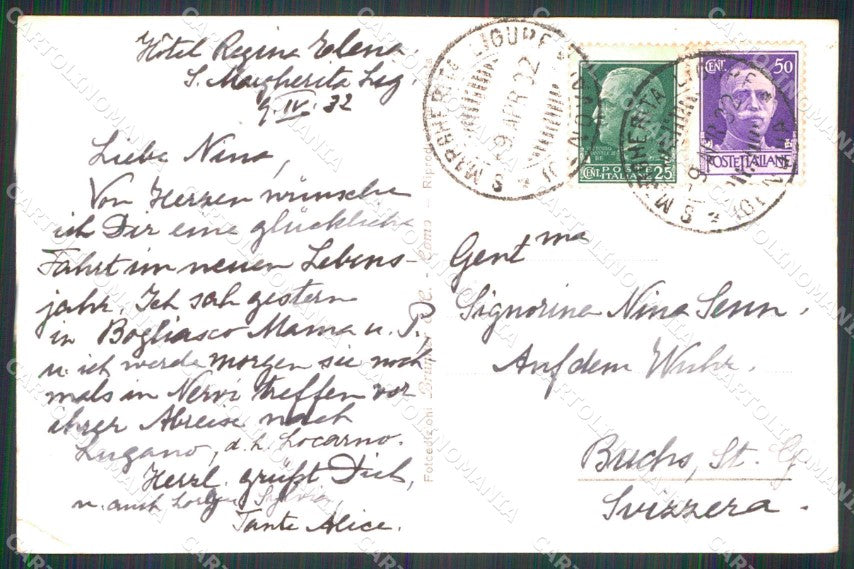 Hôtel Regina Elena
S. Margherita Lig.
9.IV.32
Liebe Nina,
Von Herzen wünsche
ich Dir eine glückliche
Fahrt im neuen Lebens-
jahr. Ich sah gestern
in Bogliasco Mama u. P.
u. ich werde morgen sie noch-
mals in Nervi treffen vor
ihrer Abreise nach
Lugano, d.h. Locarno.
Herzl. grüßt Dich,
u. auch
Tante Alice.
Fotoedizioni Brunner & C. - Como - Riprod.
S. MARGHERITA LIGURE
-9 APR 32
CENT. 25
POSTE
ITALIANE
CENT. 50
POSTE ITALIANE
S. MARGHERITA LIGURE
-9 APR 32
Gent ma
Signorina Nina Senn.
Auf dem Wuhr.
Buchs, St. G.
Svizzera.
CARTOLINOMANIA